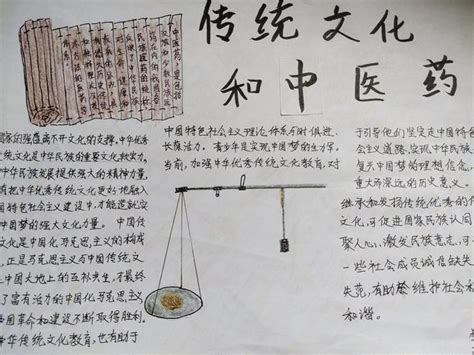 传统文化
和中医药
中医药是包括
汉族和少数民族
医药在内的我国各
民族医药的统称
国家的强盛离不开文化的支撑。中华优秀
传统文化是中华民族的重要文化软实力。
中华民族发展提供强大的精神力量。
把中华优秀传统文化更好地融入
国特色社会主义建设中,才能造就实
中国梦的强大文化力量。 中国传
文化是中国化马克思主义的构成
正是马克思主义与中国传统文
在中国大地上的互补共生,才最终
了富有活力的中国化马克思主义
中国革命和建设不断取得胜利。
中华传统文化教育,也有助于
中国特色社会主义理论体系与时俱进、
长葆活力。 青少年是实现中国梦的生力
当前,加强中华优秀传统文化教育,对
于引导他们坚定走中国特色
会主义道路、实现中华民族
复兴中国梦的理想信念,
重大而深远的历史意义。
继承和发扬传统优秀的
文化,可促进国家民族认同
聚人心,激发民族意志,可
一些社会成员诚信缺失
失范,有助于维护社会和
和谐。